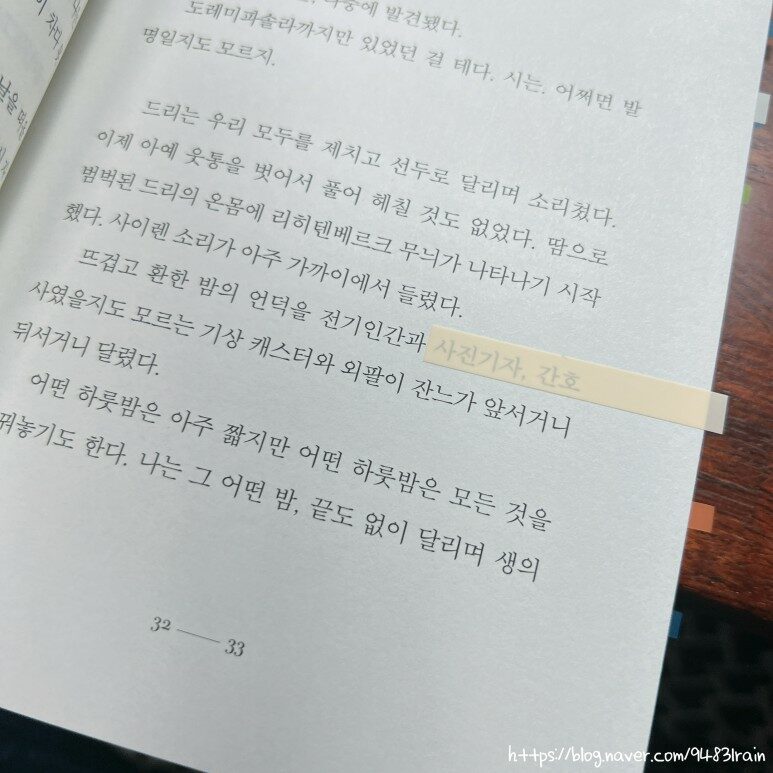 발견됐다.
도레미파솔라까지만 있었던 걸 테다. 시는. 어쩌면 발
명일지도 모르지.
드리는 우리 모두를 제치고 선두로 달리며 소리쳤다.
이제 아예 웃통을 벗어서 풀어 헤칠 것도 없었다. 땀으로
범벅된 드리의 온몸에 리히텐베르크 무늬가 나타나기 시작
했다. 사이렌 소리가 아주 가까이에서 들렸다.
뜨겁고 환한 밤의 언덕을 전기인간과 사진기자, 간호
사였을지도 모르는 기상 캐스터와 외팔이 잔느가 앞서거니
뒤서거니 달렸다.
어떤 하룻밤은 아주 짧지만 어떤 하룻밤은 모든 것을
꿔놓기도 한다. 나는 그 어떤 밤, 끝도 없이 달리며 생의
32 — 33
https://blog.naver.com/94831rain